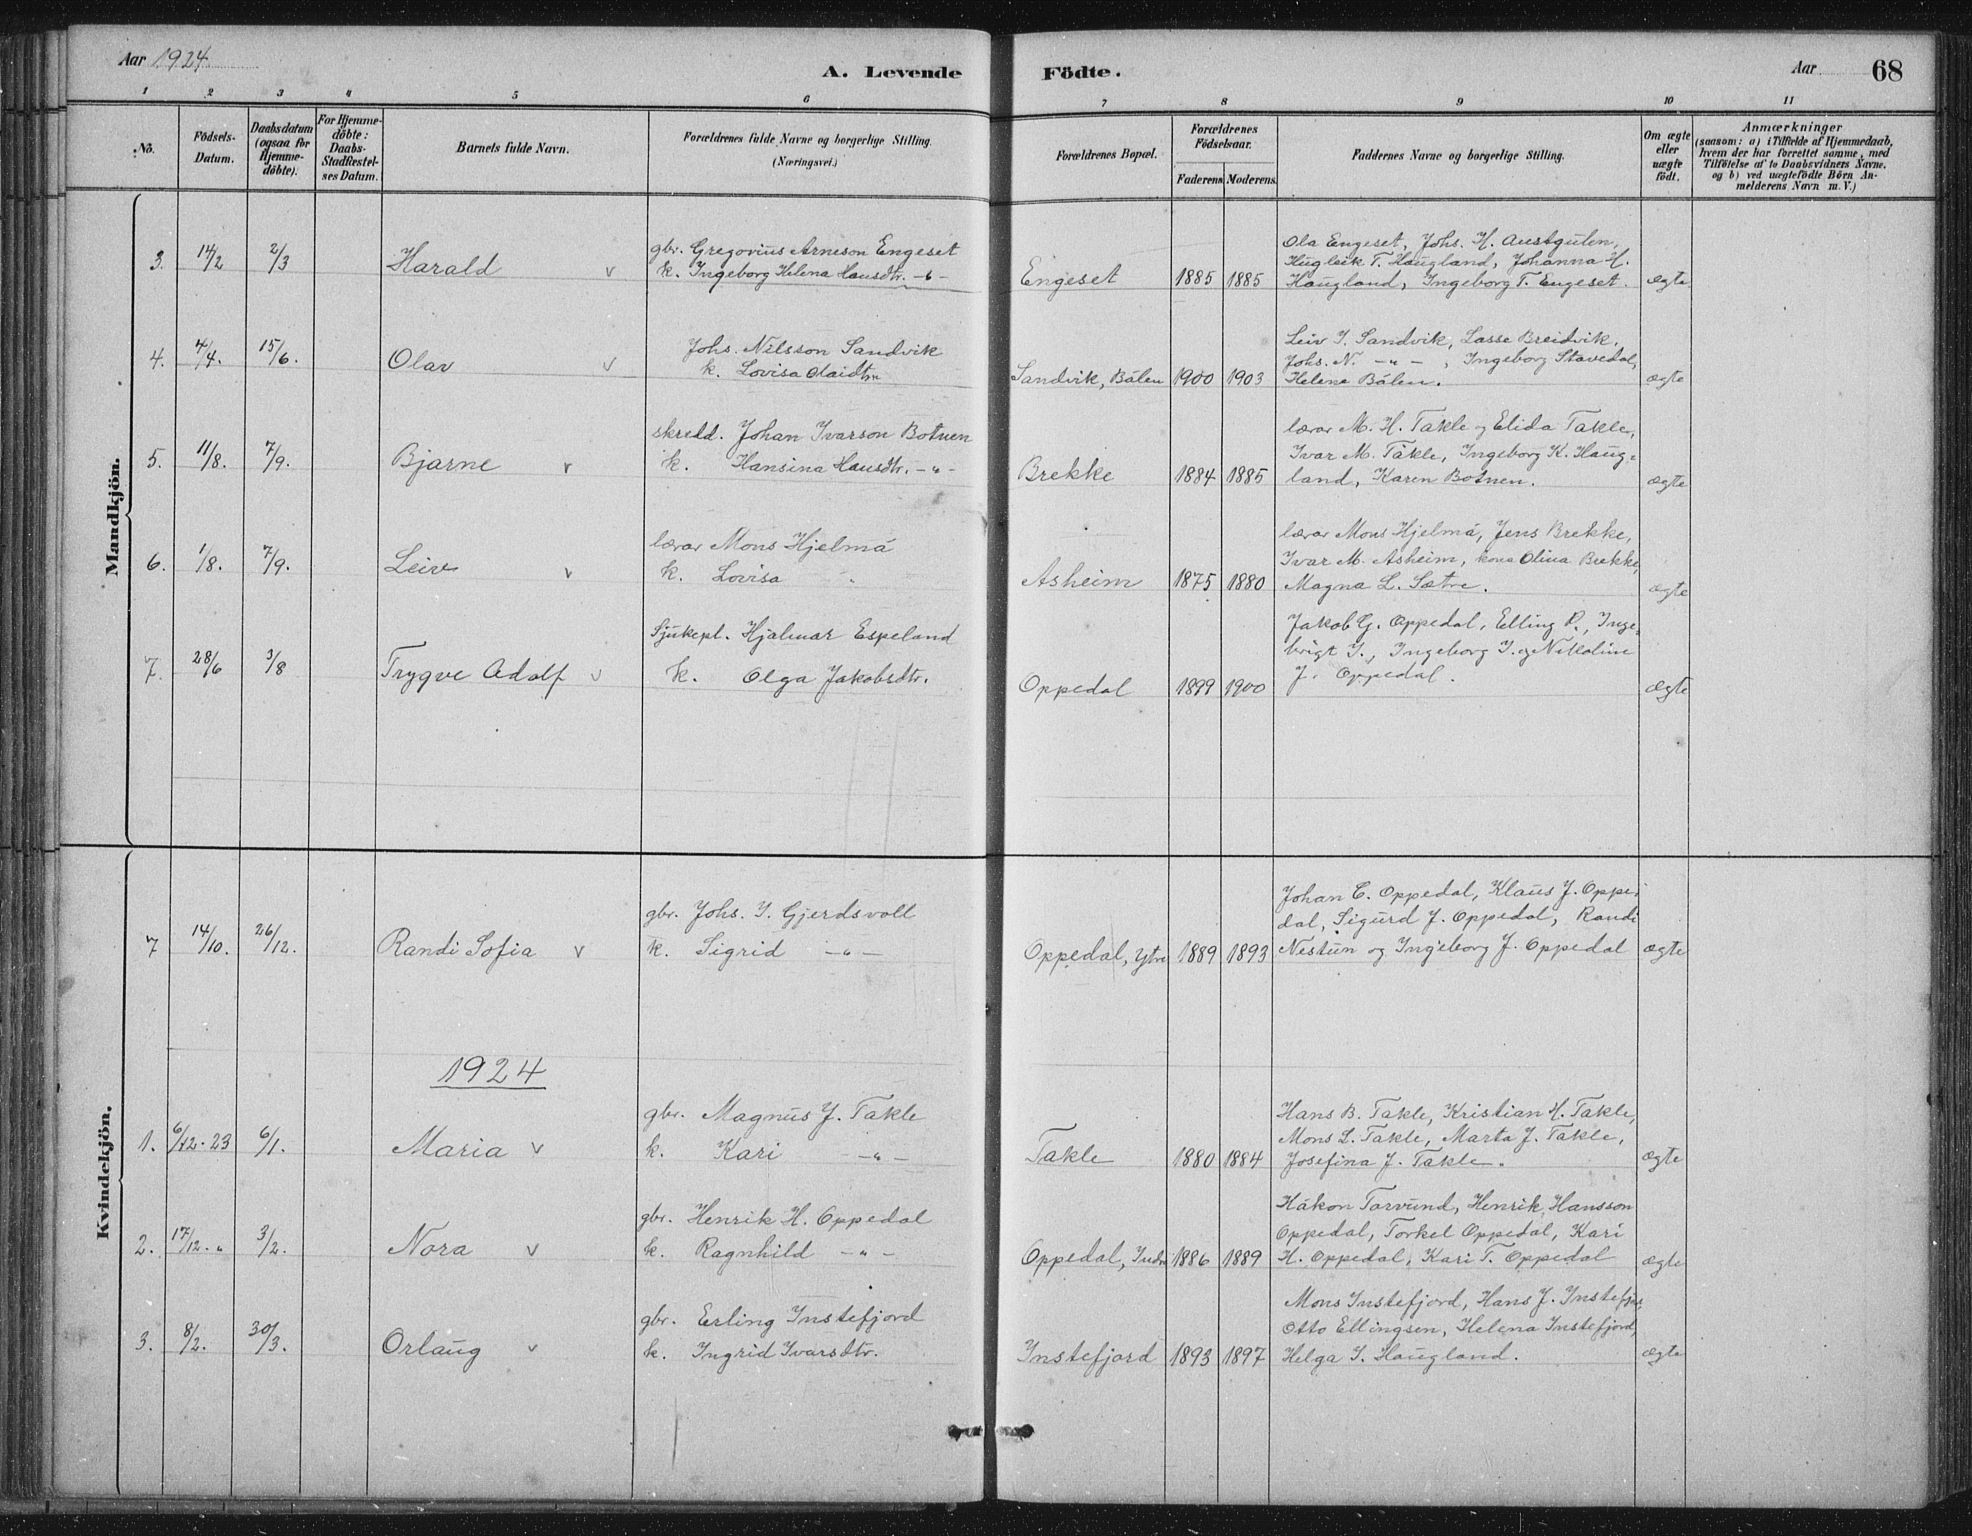 Aar 1924
A. Levende Födte.
Aar 68
1 2 3 4 5 6 7 8 9 10 11
No.
Födsels-
Datum.
Daabsdatum
(ogsaa for
Hjemme-
döbte).
For Hjemme-
döbte:
Daabs-
Stadfæstel-
ses Datum.
Barnets fulde Navn.
Forældrenes fulde Navne og borgerlige Stilling.
(Næringsvei.)
Forældrenes Bopæl.
Forældrenes
Födselsaar.
Faderens Moderens
Faddernes Navne og borgerlige Stilling.
Om ægte
eller
uægte
födt.
Anmærkninger
(saasom: a) i Tilfælde af Hjemmedaab,
hvem der har forrettet samme, med
Tilföielse af to Daabsvidners Navne,
og b) ved uægtefödte Börn An-
melderens Navn m. V.)
Mandkjön.
gbr. Gregorius Arneson Engeset
Ola Engeset, Johs. H. Austgulen,
3. 14/2 2/3 Harald v k. Ingeborg Helena Hansdtr. -"-
Hugleik T. Haugland, Johanna H.
Engeset 1885 1885 Haugland, Ingeborg T. Engeset. ægte
Johs. Nilsson Sandvik
Leiv I. Sandvik, Lasse Breidvik,
4. 4/4. 15/6. Olav v k. Lovisa Olaidtr.
Johs. N. -"-, Ingeborg Stavedal,
Sandvik, Bölen 1900 1903 Helena Bölen. ægte
skredd. Johan Ivarson Botnen
lærar M. H. Takle og Elida Takle,
5. 11/8. 7/9. Bjarne v k. Hansina Hansdtr. -"-
Ivar M. Takle, Ingeborg K. Haug-
Brekke 1884 1885 land, Karen Botnen. ægte
lærar Mons Hjelmå
lærar Mons Hjelmå, Jens Brekke,
6. 1/8. 7/9. Leiv v k. Lovisa "
Ivar M. Asheim, kona Olina Brekke,
Asheim 1875 1880 Magna L. Sætre. ægte
Sjukepl. Hjalmar Espeland
Jakob G. Oppedal, Elling R., Inge-
7. 28/6 3/8 Trygve Adolf v k. Olga Jakobsdtr.
brigt I., Ingeborg I. og Nikoline
Oppedal 1899 1900 J. Oppedal. ægte
Kvindekjön.
gbr. Johs. I. Gjerdsvoll
Johan E. Oppedal, Klaus J. Oppe-
dal, Sigurd J. Oppedal, Randi
7 14/10. 26/12. Randi Sofia v k. Sigrid -"-
Oppedal, Ytre 1889 1893 Nestun og Ingeborg J. Oppedal ægte
1924
gbr. Magnus J. Takle
Hans B. Takle, Kristian H. Takle,
Mons L. Takle, Marta J. Takle,
1. 6/12-23 6/1. Maria v k. Kari -"-
Takle 1880 1884 Josefina J. Takle. ægte
gbr. Henrik H. Oppedal
Håkon Torvund, Henrik Hansson
Oppedal, Torkel Oppedal, Kari
2. 17/12-" 3/2. Nora v k. Ragnhild -"-
Oppedal, Indre 1886 1889 H. Oppedal, Kari T. Oppedal ægte
gbr. Erling Instefjord
Mons Instefjord, Hans J. Instefjord,
Otto Ellingsen, Helena Instefjord,
3. 8/2. 30/3. Orlaug v k. Ingrid Ivarsdtr.
Instefjord 1893 1897 Helga I. Haugland. ægte